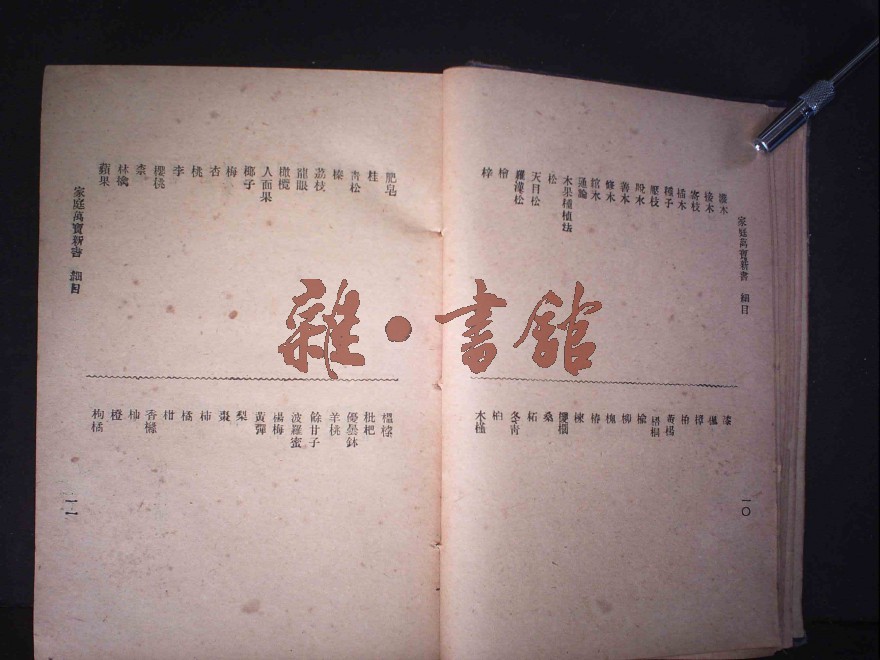 家庭萬寶新書 細目
灌木
接木
寄枝
插木
種子
壓枝
脫木
善木
修木
通論
木果種植法
松
天目松
羅漢松
檜
梓
漆
楓
樟
柏
黃楊
梧桐
榆
柳
槐
椿
楝
櫻桐
桑
柘
冬青
桕
木槿
一〇
肥皂
桂
青松
榛
荔枝
龍眼
橄欖
人面果
椰子
梅
杏
桃
李
櫻桃
柰
林檎
蘋果
家庭萬寶新書 細目
榲桲
枇杷
優曇鉢
羊桃
餘甘子
波羅蜜
楊梅
黃彈
梨
棗
柿
橘
柑
香櫞
柿
橙
枸橘
一一
雜·書舘